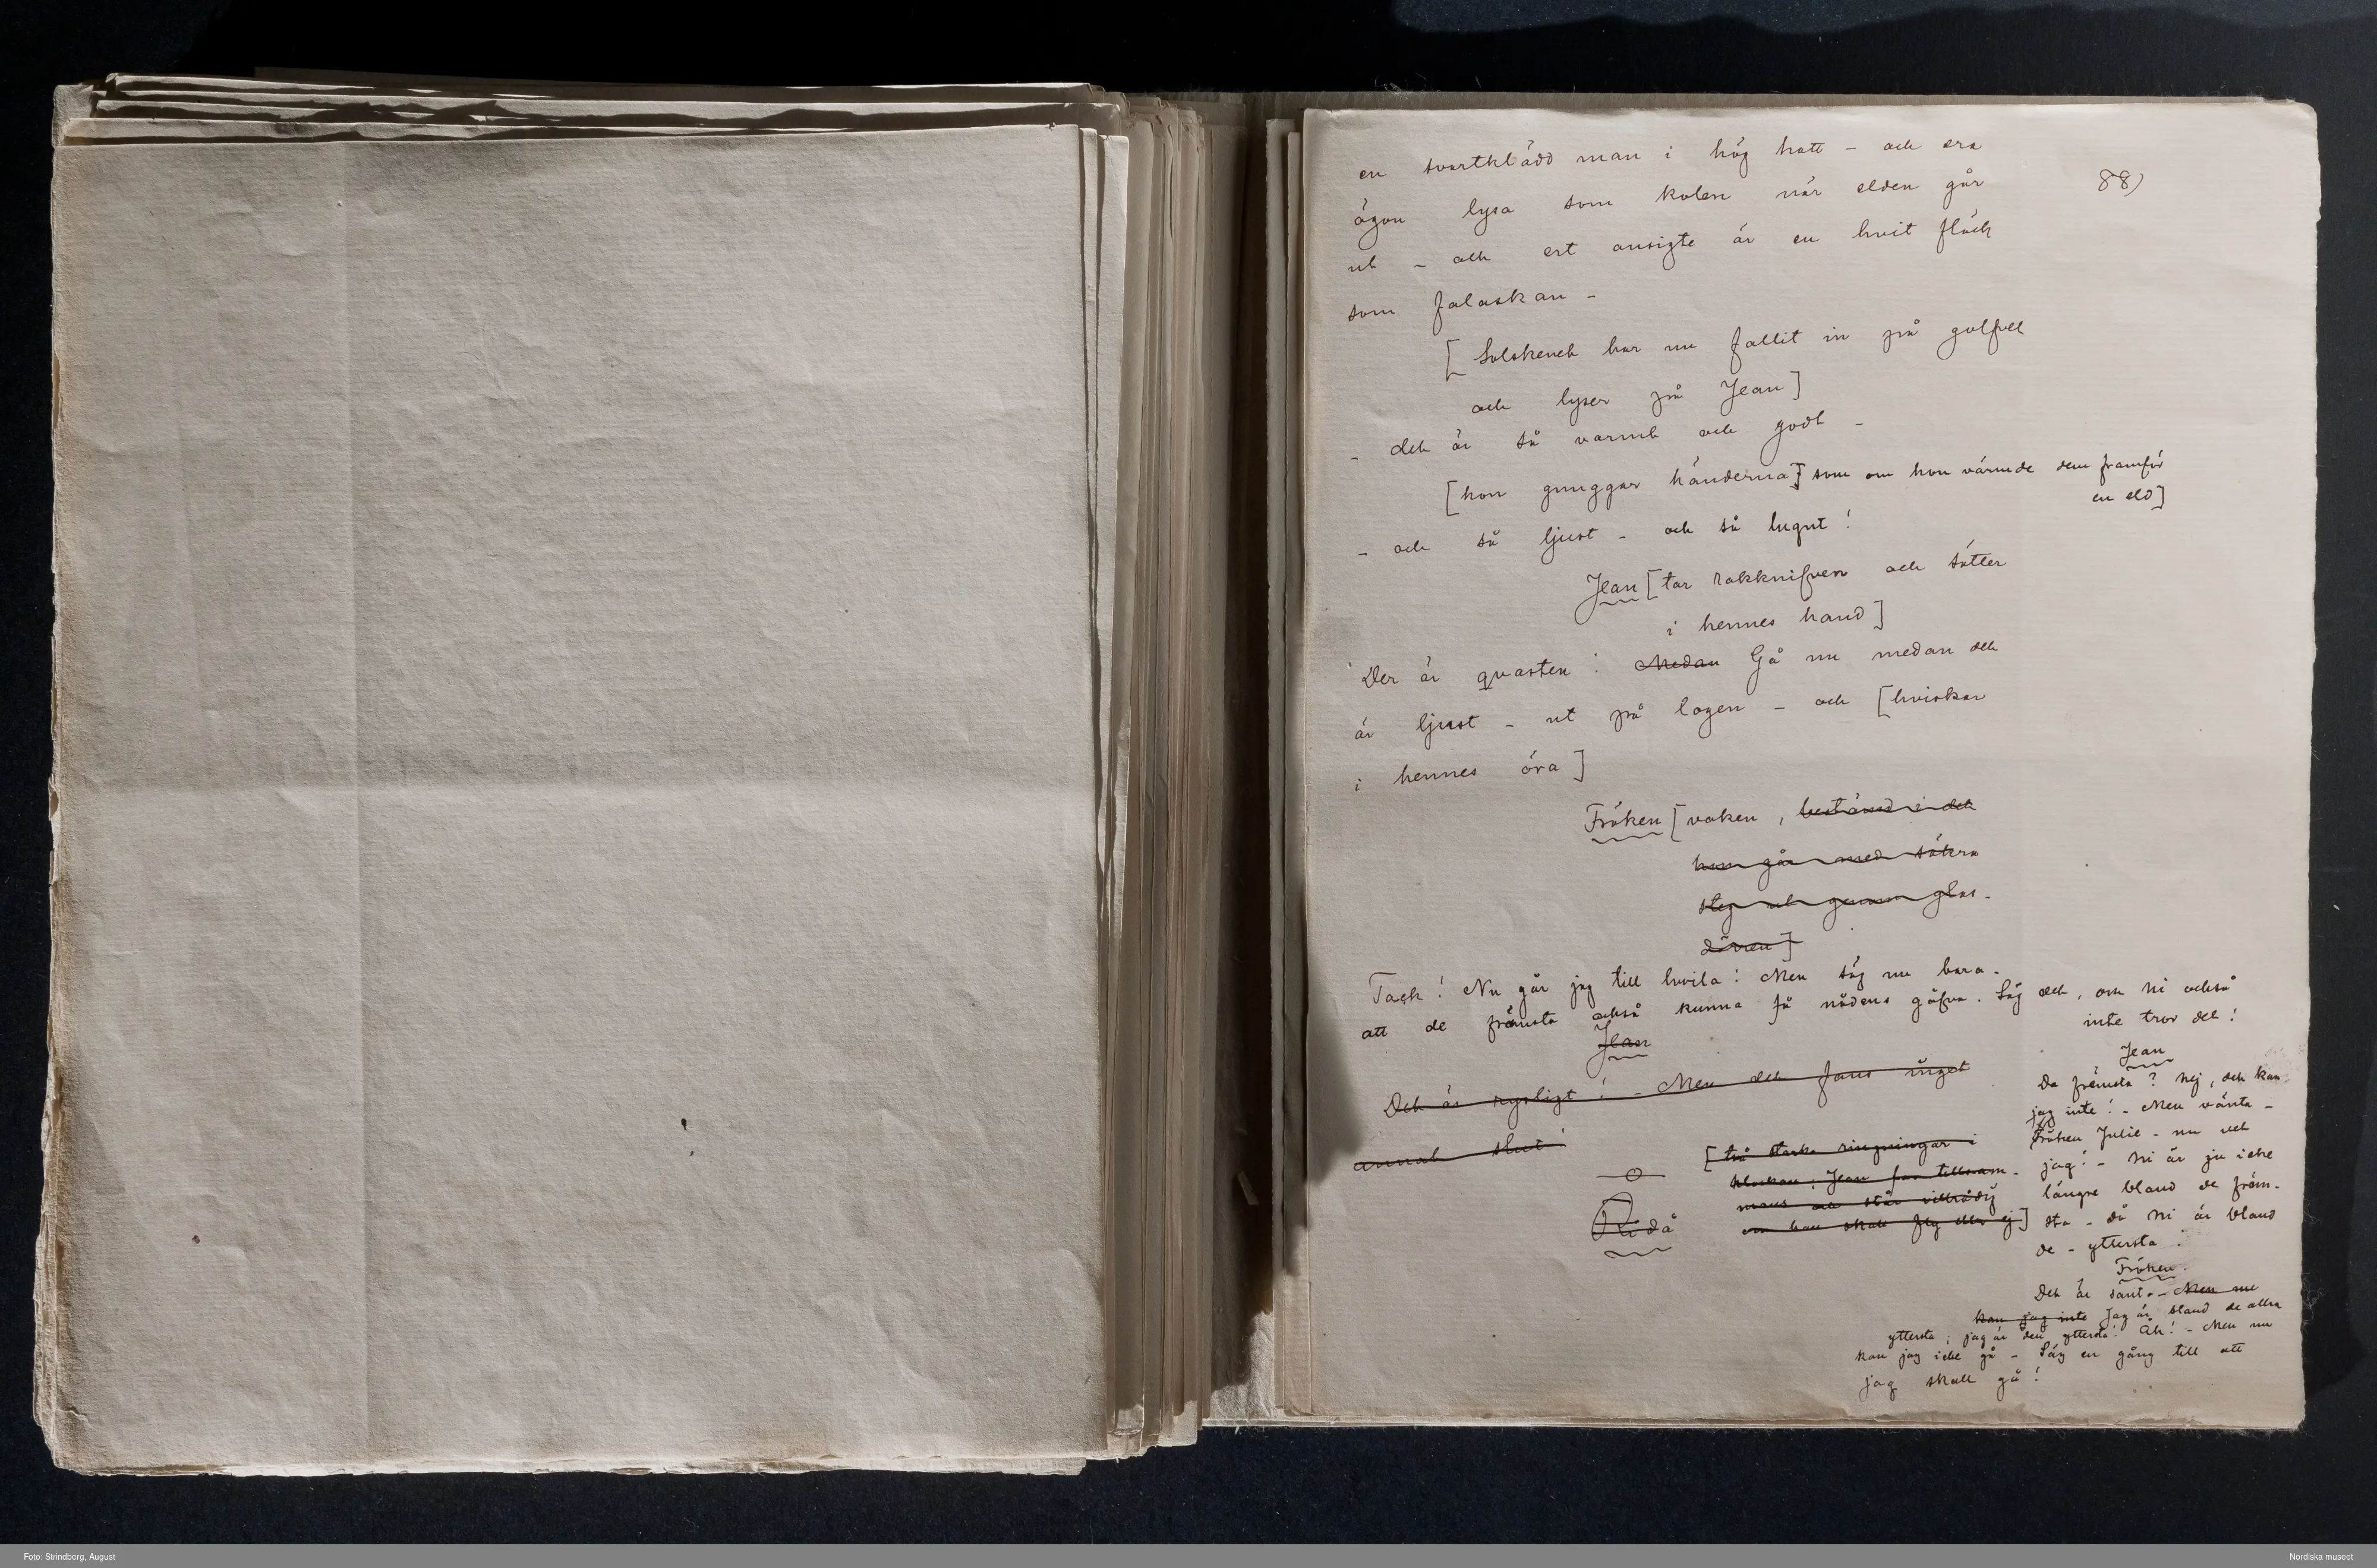 en svartklädd man i hög hatt – och era
88)
ögon lysa som kolen när elden går
ut – och ert ansigte är en hvit fläck
som falaskan –
[Solskenet har nu fallit in på golfvet
och lyser på Jean]
– det är så varmt och godt –
[hon gnuggar händerna] som om hon värmde dem framför
en eld]
– och så ljust – och så lugnt!
Jean [tar rakknifven och sätter
i hennes hand]
Der är qvasten! Medan Gå nu medan det
är ljust – ut på logen – och [hviskar
i hennes öra]
Fröken [vaken, bestämd i det
hon går med säkra
steg ut genom glas-
dörren]
Tack! Nu går jag till hvila! Men säg nu bara –
att de främsta också kunna få nådens gåfva. Säg det, om ni också
inte tror det!
Jean
Det är rysligt! – Men det fans inget
annat slut!
[två starka ringningar i
klockan; Jean far tillsam-
mans och står villrådig
om han skall fly eller ej]
Ridå
Jean
De främsta? Nej, det kan
jag inte! – Men vänta –
Fröken Julie – nu vet
jag! – Ni är ju icke
längre bland de främ-
sta – då ni är bland
de – yttersta!
Fröken.
Det är sant. – Men nu
kan jag inte Jag är bland de allra
yttersta; jag är den yttersta! Åh! – Men nu
kan jag icke gå – Säg en gång till att
jag skall gå!
Foto: Strindberg, August
Nordiska museet